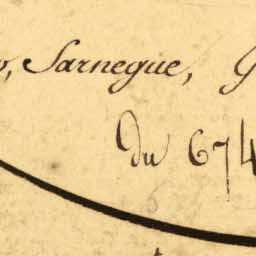 Sarnegue,
Du 674